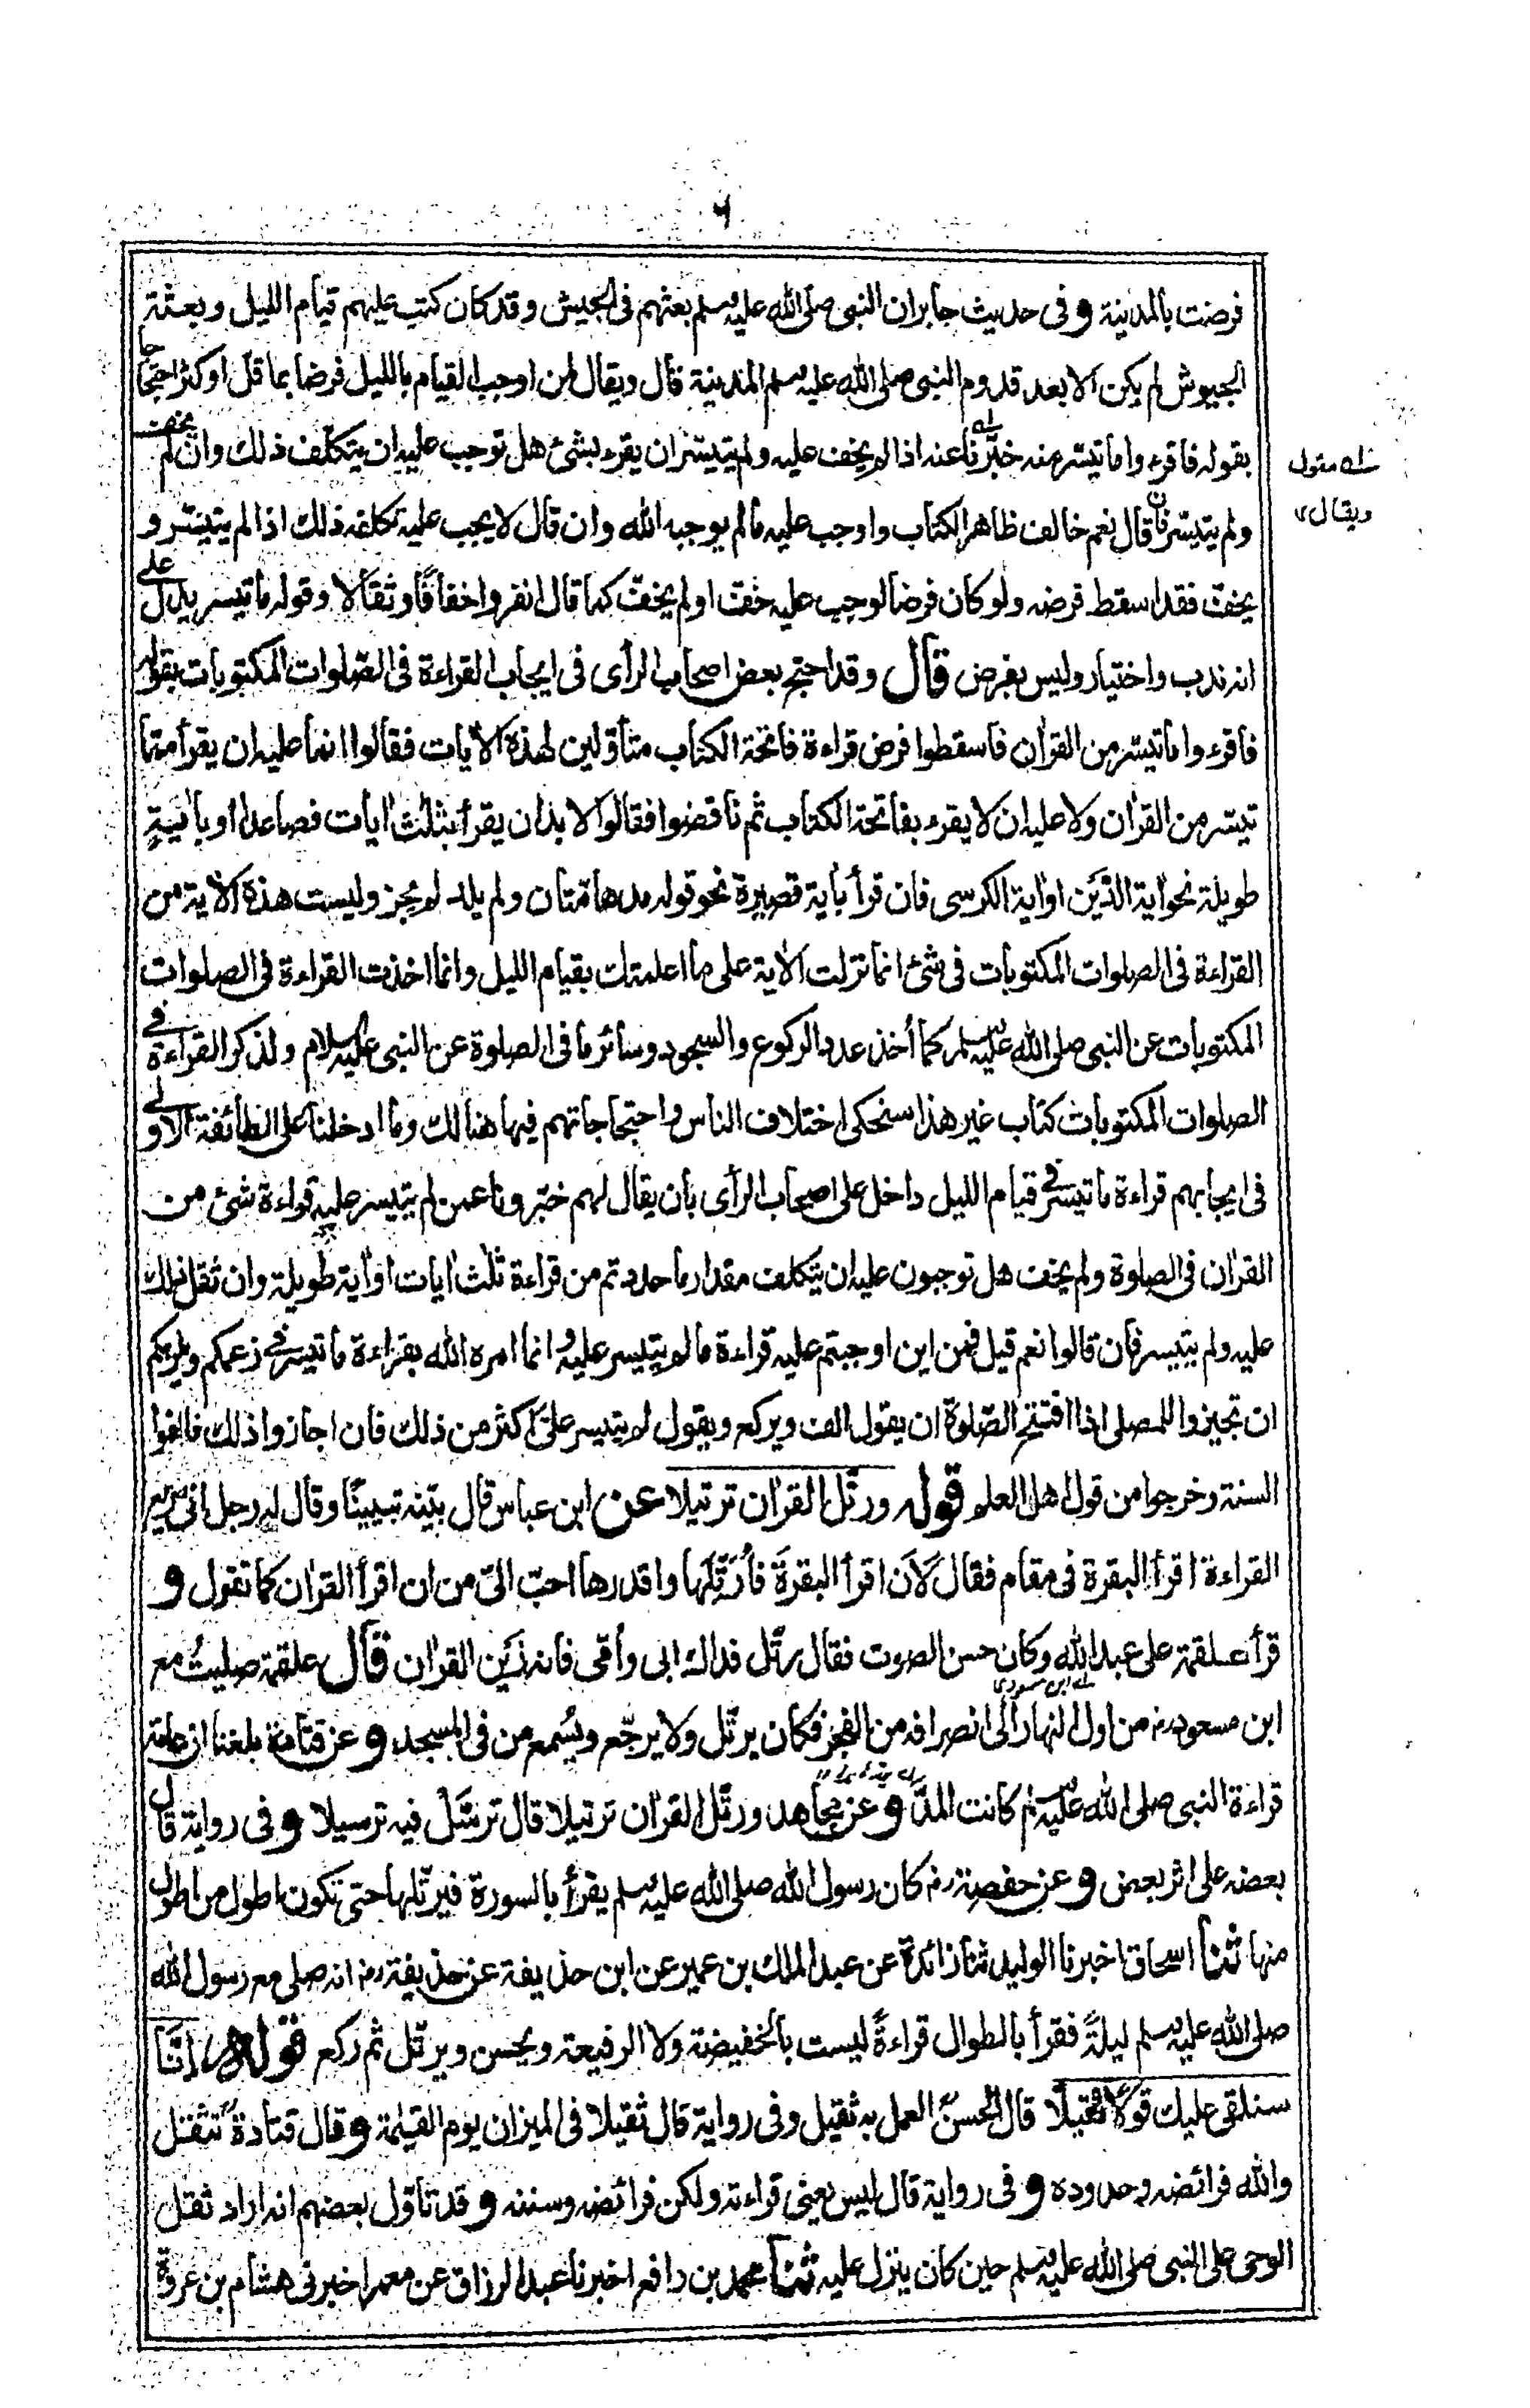 ٦
فرضت بالمدينة وفى حديث جابران النبى صلى الله عليه وسلم بعثهم فى الجيش وقد كان كتب عليهم قيام الليل وبعثة
الجيوش لم يكن الا بعد قدوم النبى صلى الله عليه وسلم المدينة قال ويقال لمن اوجب القيام بالليل فرضا بما قل اوكثر احتجاجا
بقوله فاقرءوا ماتيسر منه خبّرنا عنه اذا لم يخف عليه ولم يتيسّر ان يقرء بشئ هل توجب عليه ان يتكلّف ذلك وان لم يخف
ولم يتيسّر فان قال نعم خالف ظاهر الكتاب واوجب عليه مالم يوجبه الله وان قال لا يجب عليه تكلفه ذلك اذا لم يتيسّر و
يخفّ فقد اسقط فرضه ولو كان فرضا لوجب عليه خفّ اولم يخفّ كما قال انفروا خفافًا وثقالا وقوله ماتيسر يدل على
انه ندب واختيار وليس بفرض قال وقد احتج بعض اصحاب الرأى فى ايجاب القراءة فى الصّلوات المكتوبات بقوله
فاقرءوا ماتيسّر من القراٰن فاسقطوا فرض قراءة فاتحة الكتاب متأوّلين لهذه الأيات فقالوا انما عليه ان يقرأ مّما
تيسّر من القراٰن ولا عليه ان لا يقرء بفاتحة الكتاب ثم ناقضوا فقالوا لا بد ان يقرأ بثلٰث اٰيات فصاعدا او باٰيةٍ
طويلة نحو اٰية الدَّيَن او اٰية الكرسى فان قرأ باٰية قصيرة نحو قوله مدهامّتان ولم يلد لم يجز وليست هذه الاٰية من
القراءة فى الصلوات المكتوبات فى شئ انما نزلت الاٰية على ما اعلمتك بقيام الليل وانما اخذت القراءة فى الصلوات
المكتوبات عن النبى صلى الله عليه وسلم كما أخذ عدد الركوع والسجود وسائر ما فى الصلوة عن النبى عليه السلام ولذكر القراءة فى
الصلوات المكتوبات كتاب غير هذا سنحكى اختلاف الناس واحتجاجاتهم فيها هنالك وما ادخلنا على الطائفة الاولى
فى ايجابهم قراءة ماتيسر فى قيام الليل داخل على اصحاب الرأى بان يقال لهم خبّرونا عمن لم يتيسر عليه قراءة شئ من
القراٰن فى الصلوة ولم يخف هل توجبون عليه ان يتكلف مقدار ما حددتم من قراءة ثلٰث اٰيات او اٰية طويلة وان ثقل ذلك
عليه ولم يتيسر فان قالوا نعم قيل فمن اين اوجبتم عليه قراءة مالم يتيسر عليه وانما امره الله بقراءة ماتيسر فى زعمكم ويلزمكم
ان تجيزوا للمصلى اذا افتتح الصّلوة ان يقول الف ويركع ويقول لم يتيسر علىّ اكثر من ذلك فان اجازوا ذلك خالفوا
السنة وخرجوا من قول اهل العلم قوله ورتّل القراٰن ترتيلا عن ابن عباس قال بيّنه تبيينًا وقال له رجل انى سريع
القراءة اقرأ البقرة فى مقام فقال لَاَن اقرأ البقرةَ فأُرَتِّلَها واقدرها احبّ الىّ من ان اقرأ القراٰن كما تقول و
قرأ علقمة على عبد الله وكان حسن الصوت فقال رتّل فداك ابى وأمّى فانه زَيَن القراٰن قال علقمة صليتُ مع
ابن مسعود رضـ من اول النهار الى انصرافه من الفجر فكان يرتّل ولا يرجّع ويُسمع من فى المسجد وعن قتادة بلغنا ان عامة
قراءة النبى صلى الله عليه وسلم كانت المدّ وعن مجاهد ورتّل القراٰن ترتيلا قال ترسَّلْ فيه ترسيلا وفى رواية قال
بعضه على اثر بعض وعن حفصة رضـ كان رسول الله صلى الله عليه وسلم يقرأ بالسورة فيرتّلها حتى تكون اطول من اطول
منها ثنا اسحاق اخبرنا الوليد ثنا زائدة عن عبد الملك بن عمير عن ابن حذيفة عن حذيفة رضـ انه صلى مع رسول الله
صلى الله عليه وسلم ليلةً فقرأ بالطوال قراءةً ليست بالخفيضة ولا الرفيعة ويحسن ويرتّل ثم ركع قوله اِنّا
سنلقى عليك قولا ثقيلا قال الحسن العمل به ثقيل وفى رواية قال ثقيلا فى الميزان يوم القيٰمة وقال قتادة تثقل
والله فرائضه وحدوده وفى رواية قال ليس يعنى قراءته ولكن فرائضه وسننه وقد تأوّل بعضهم انه اراد ثقل
الوحى على النبى صلى الله عليه وسلم حين كان ينزل عليه ثنا محمد بن رافع اخبرنا عبد الرزاق عن معمر اخبرنى هشام بن عروة
ويقال